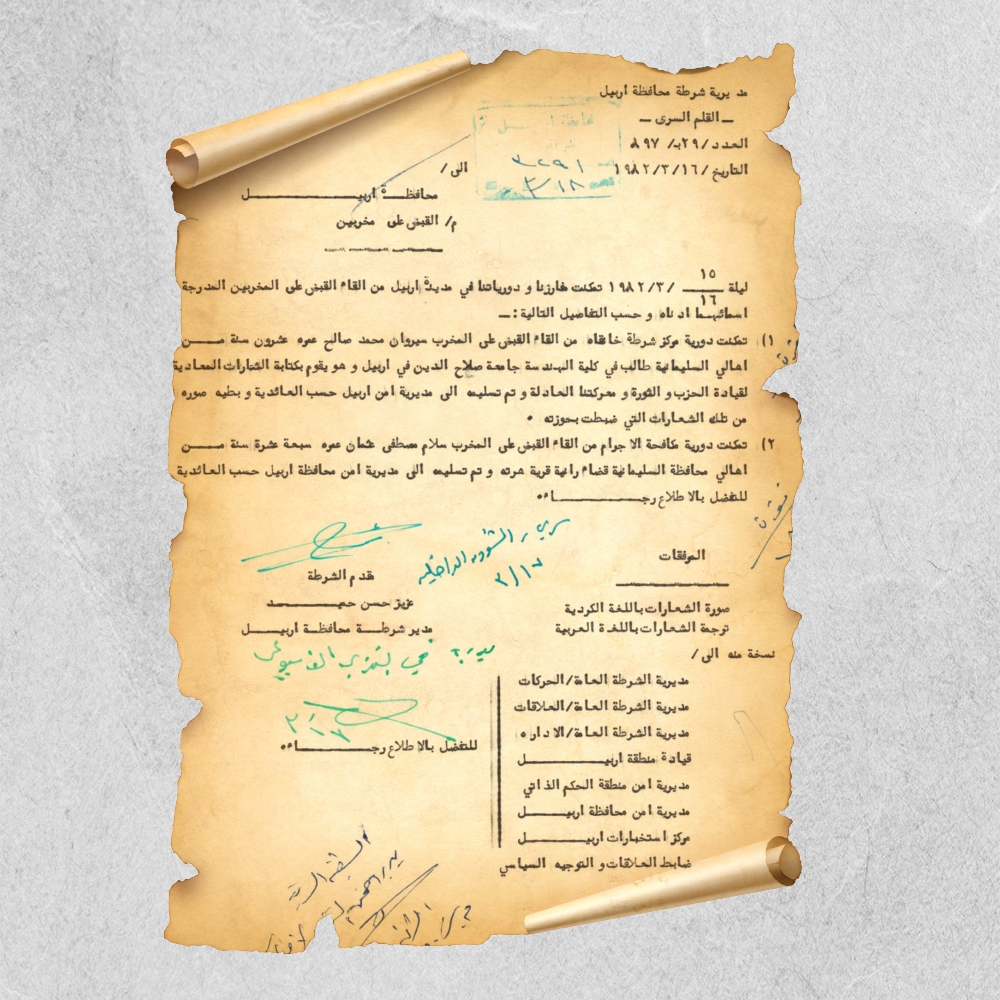 مديرية شرطة محافظة اربيل
ــ القلم السرى ــ
العدد/٢٩ب/ ٨٩٧
التاريخ/١٩٨٢/٣/١٦
٣٢٩١
٣/١٨
الى/
محافظــة اربيـــــــــــــل
م/ القبض على مخربين
ليلة ١٥/١٦ /١٩٨٢/٣ تمكنت مفارزنا و دورياتنا في مدينة اربيل من القاء القبض على المخربين المدرجة
اسمائهما ادناه و حسب التفاصيل التالية :ــ
١) تمكنت دورية مركز شرطة خانقاه من القاء القبض على المخرب سيروان محمد صالح عمره عشرون سنة مـــن
اهالي السليمانية طالب في كلية الهندسة جامعة صلاح الدين في اربيل و هو يقوم بكتابة الشعارات المعادية
لقيادة الحزب و الثورة و معركتنا العادلة و تم تسليمه الى مديرية امن اربيل حسب العائدية و بطيه صوره
من تلك الشعارات التي ضبطت بحوزته ٠
٢) تمكنت دورية مكافحة الاجرام من القاء القبض على المخرب سلام مصطفى عثمان عمره سبعة عشرة سنة مـــن
اهالي محافظة السليمانية قضاء رانية قرية و تم تسليمه الى مديرية امن محافظة اربيل حسب العائدية
للتفضل بالاطلاع رجـــــــــاء٠
الشؤون الداخلية
٣/١٧
المرفقات
صورة الشعارات باللغة الكردية
ترجمة الشعارات باللغة العربية
مقدم الشرطة
عزيز حسن حميـــــــد
مدير شرطــة محافظــة اربيـــــل
نسخة منه الى/
مديرية الشرطة العامة/الحركات
مديرية الشرطة العامة/العلاقات
مديرية الشرطة العامة/الاداره
قيادة منطقة اربيـــــــــل
مديرية امن منطقة الحكم الذاتي
مديرية امن محافظة اربيـــــل
مركز استخبارات اربيـــــــل
ضابط العلاقات و التوجيه السياسي
للتفضل بالاطلاع رجـــــــــاء٠